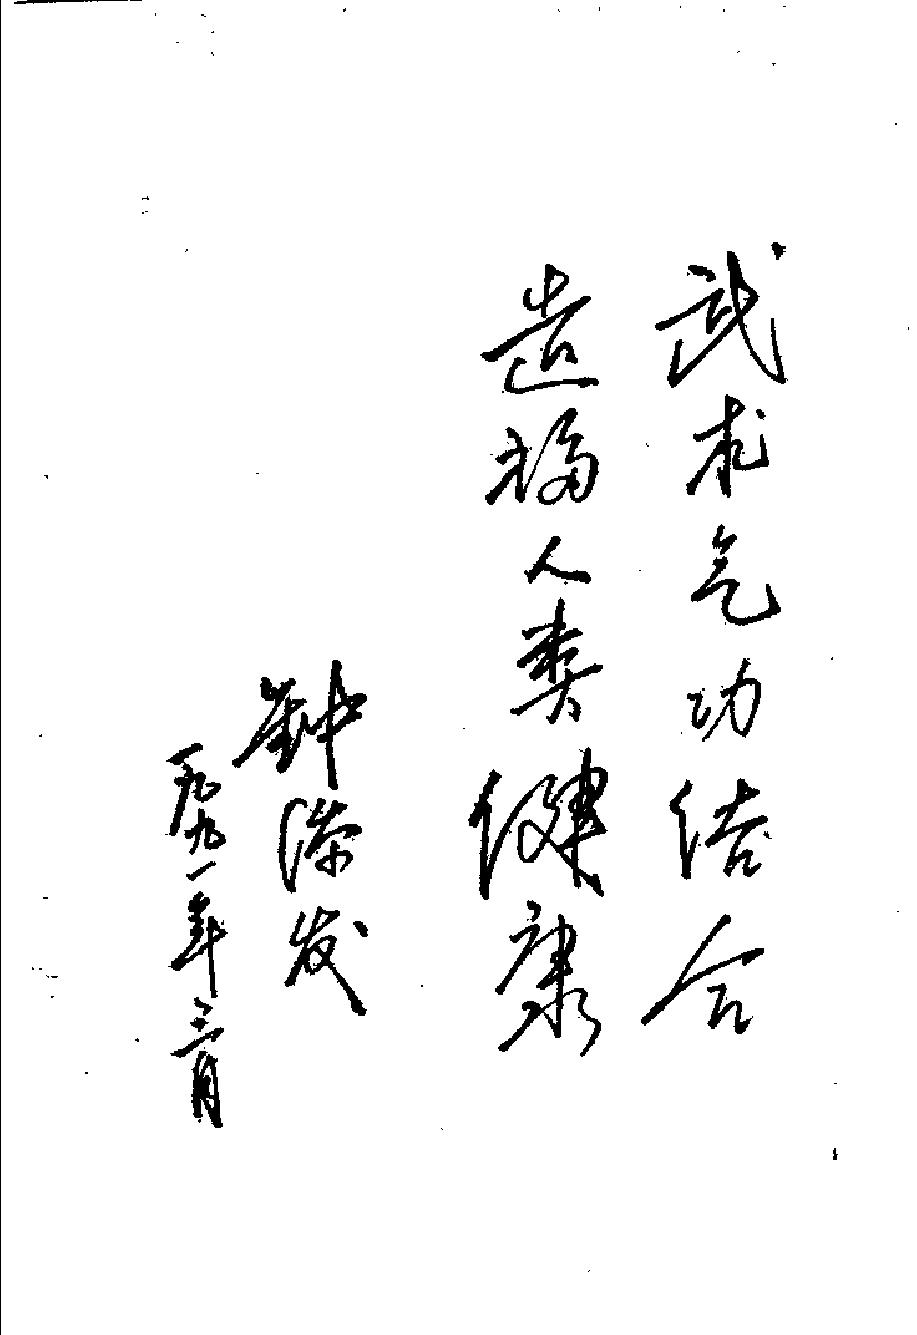 武术气功结合
造福人类健康
钟发
一九九一年三月